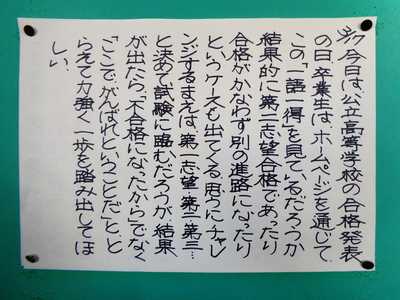 今日は、公立高等学校の合格発表
の日。卒業生は、ホームページを通じて、
この「一語一得」を見ているだろうか
結果的に第二志望合格であったり
合格がかなわず別の進路になったり
というケースも出てくる。思うにチャレ
ンジするまえは、第一志望・第二・第三…
と決めて試験に臨むだろうが、結果
が出たら、「不合格になったから」でなく
「ここで、がんばれということだ」と、と
らえて力強く一歩を踏み出してほ
しい。